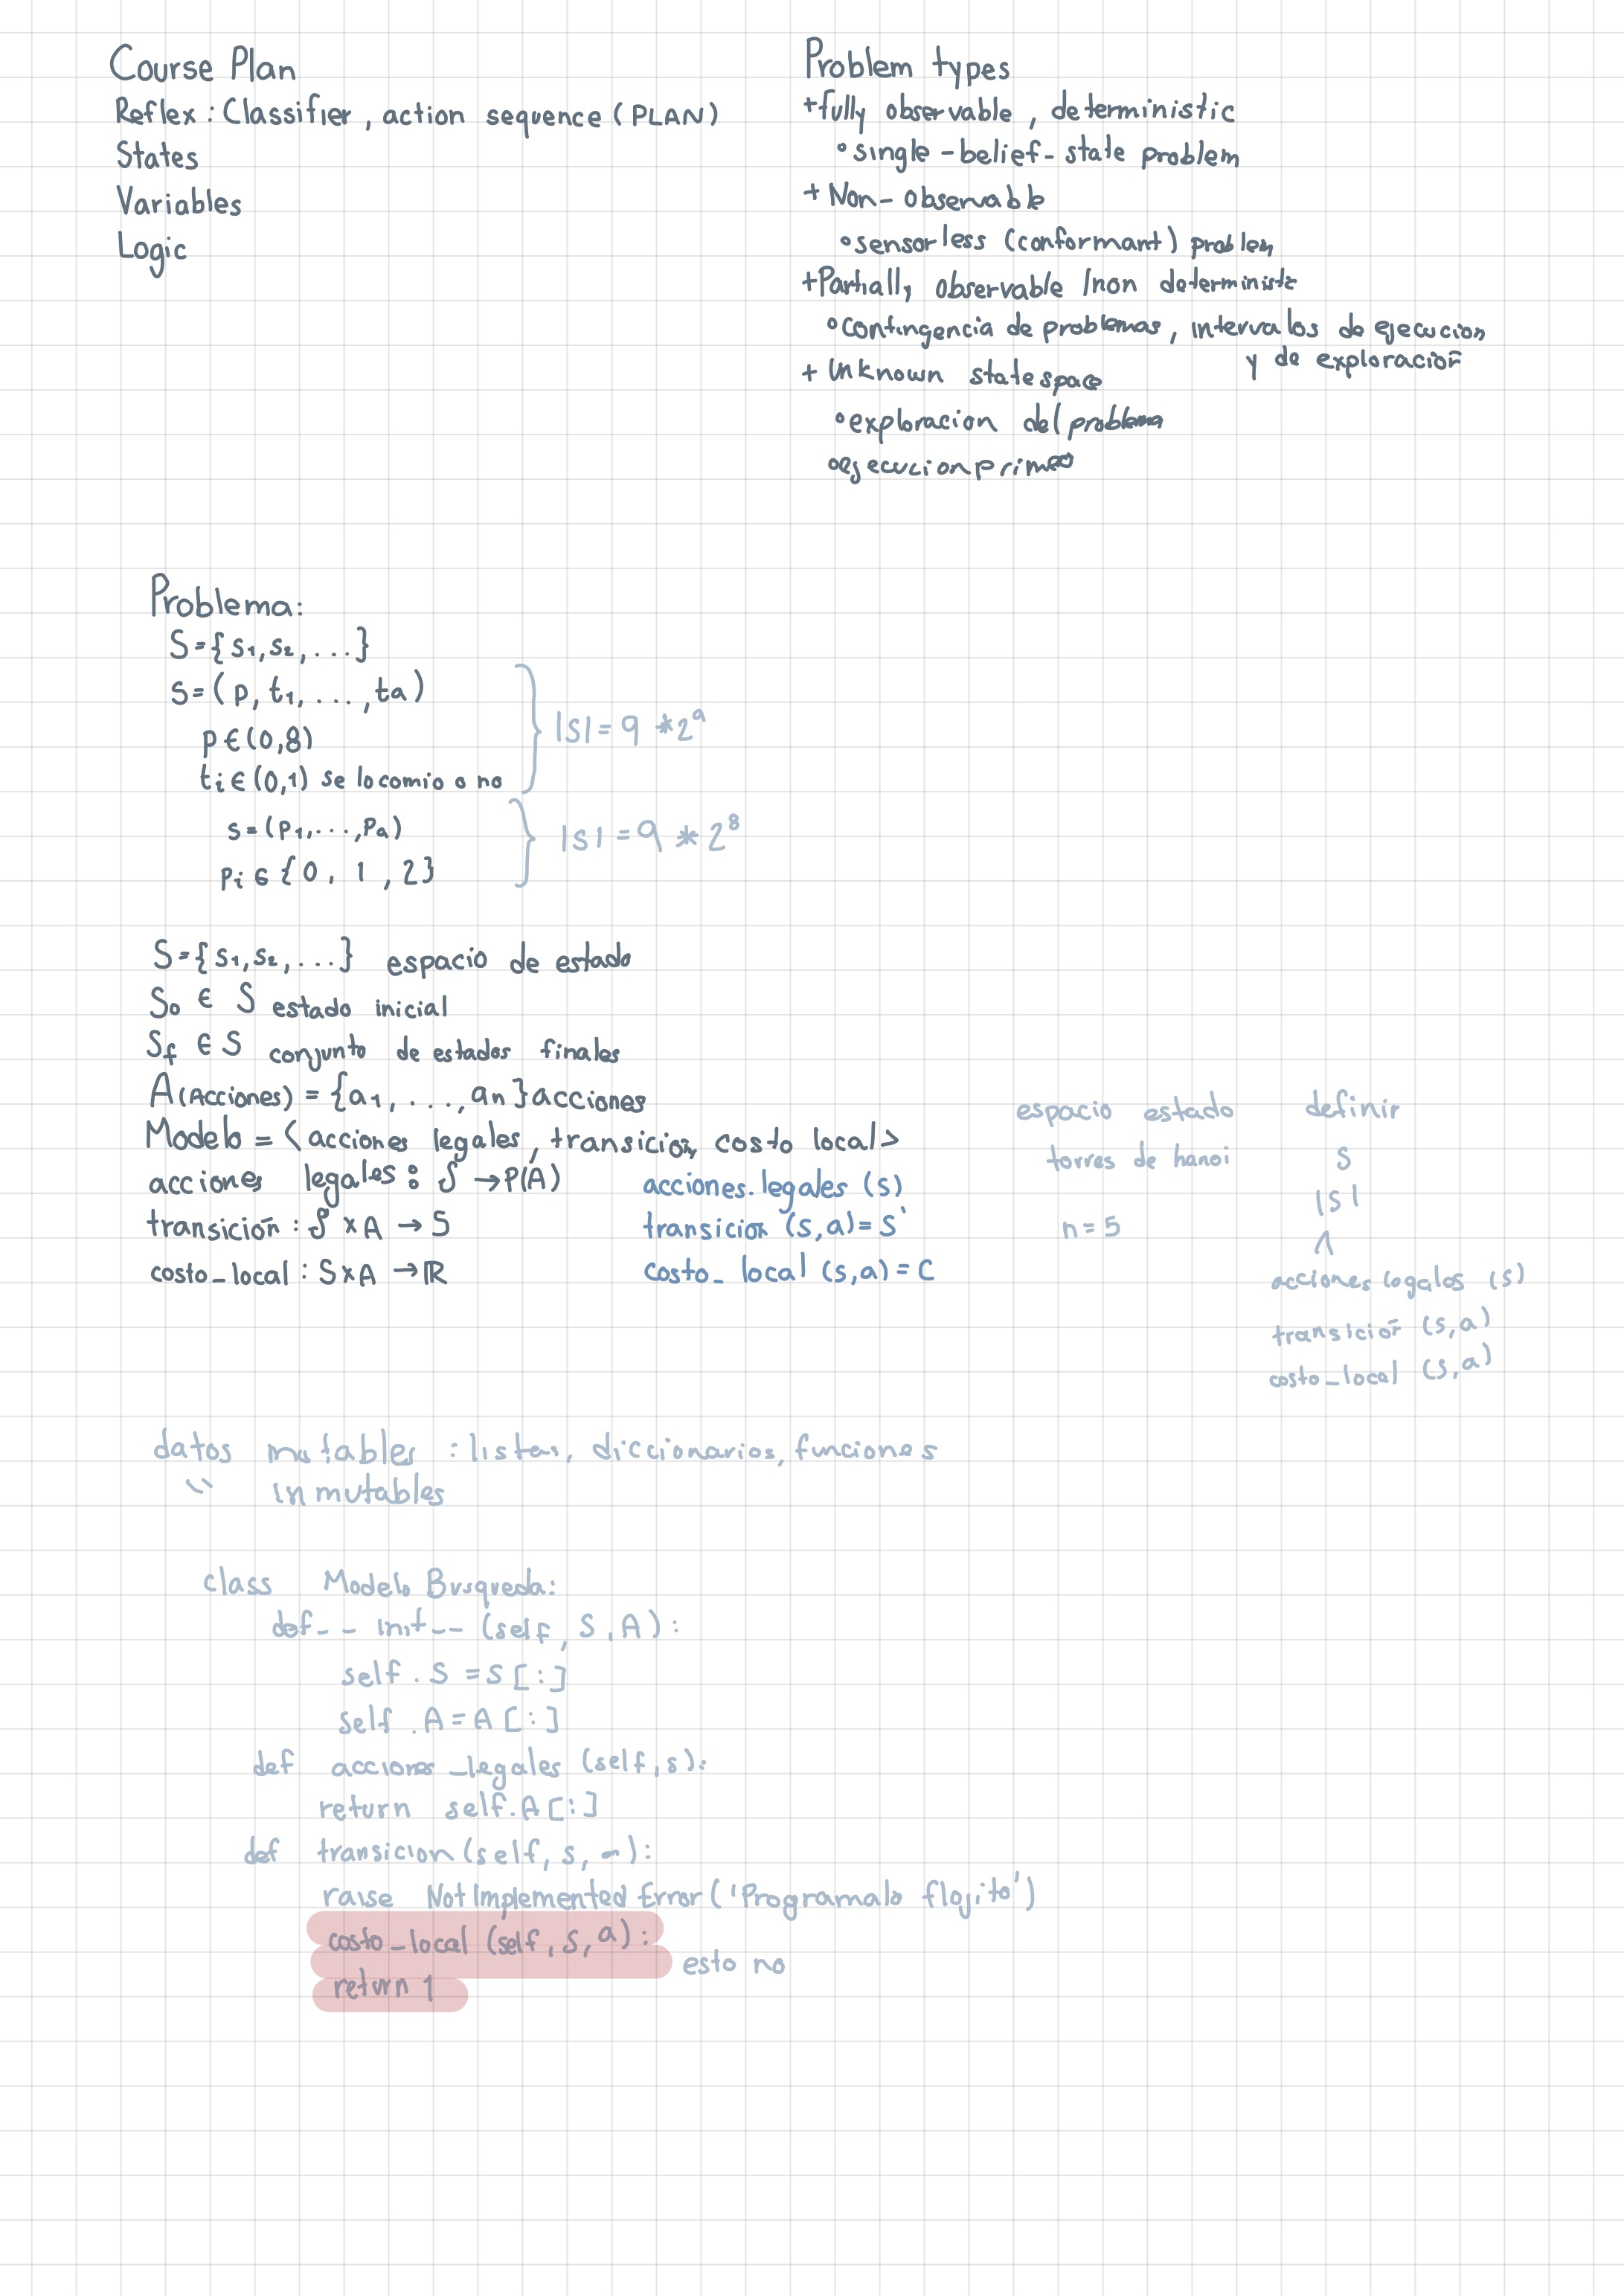 Course Plan
Reflex : Classifier , action sequence (PLAN)
States
Variables
Logic
Problem types
+fully observable , deterministic
°single-belief-state problem
+ Non-observable
°sensorless (conformant) problem
+Partially observable /non deterministic
°contingencia de problemas, intervalos de ejecucion
y de exploración
+ Unknown state space
°exploracion del problema
°ejecucion primero
Problema:
S={s1,s2,...}
s=(p,t1,...,ta)
p∈(0,8)
ti∈(0,1) se lo comio o no
|S|=9*2^9
s=(p1,...,pa)
pi∈{0, 1, 2}
|s|=9*2^8
S={s1,s2,...} espacio de estado
S0 ∈ S estado inicial
Sf ∈ S conjunto de estados finales
A(Acciones) = {a1,...,an} acciones
Modelo = <acciones legales, transición, costo local>
acciones legales : S → P(A)
transición : S x A → S
costo_local : S x A → ℝ
acciones.legales (s)
transición (s,a)=s'
costo_local (s,a)=C
espacio estado
torres de hanoi
n=5
definir
S
|S|
A
acciones legales (s)
transición (s,a)
costo_local (s,a)
datos mutables : listas, diccionarios, funciones
" inmutables
class Modelo Busqueda:
def __init__(self, S,A):
self.S = S[:]
self.A = A[:]
def acciones_legales (self,s):
return self.A[:]
def transicion(self, s, a):
raise NotImplemented Error('Programalo flojito')
costo_local (self,s,a):
return 1
esto no